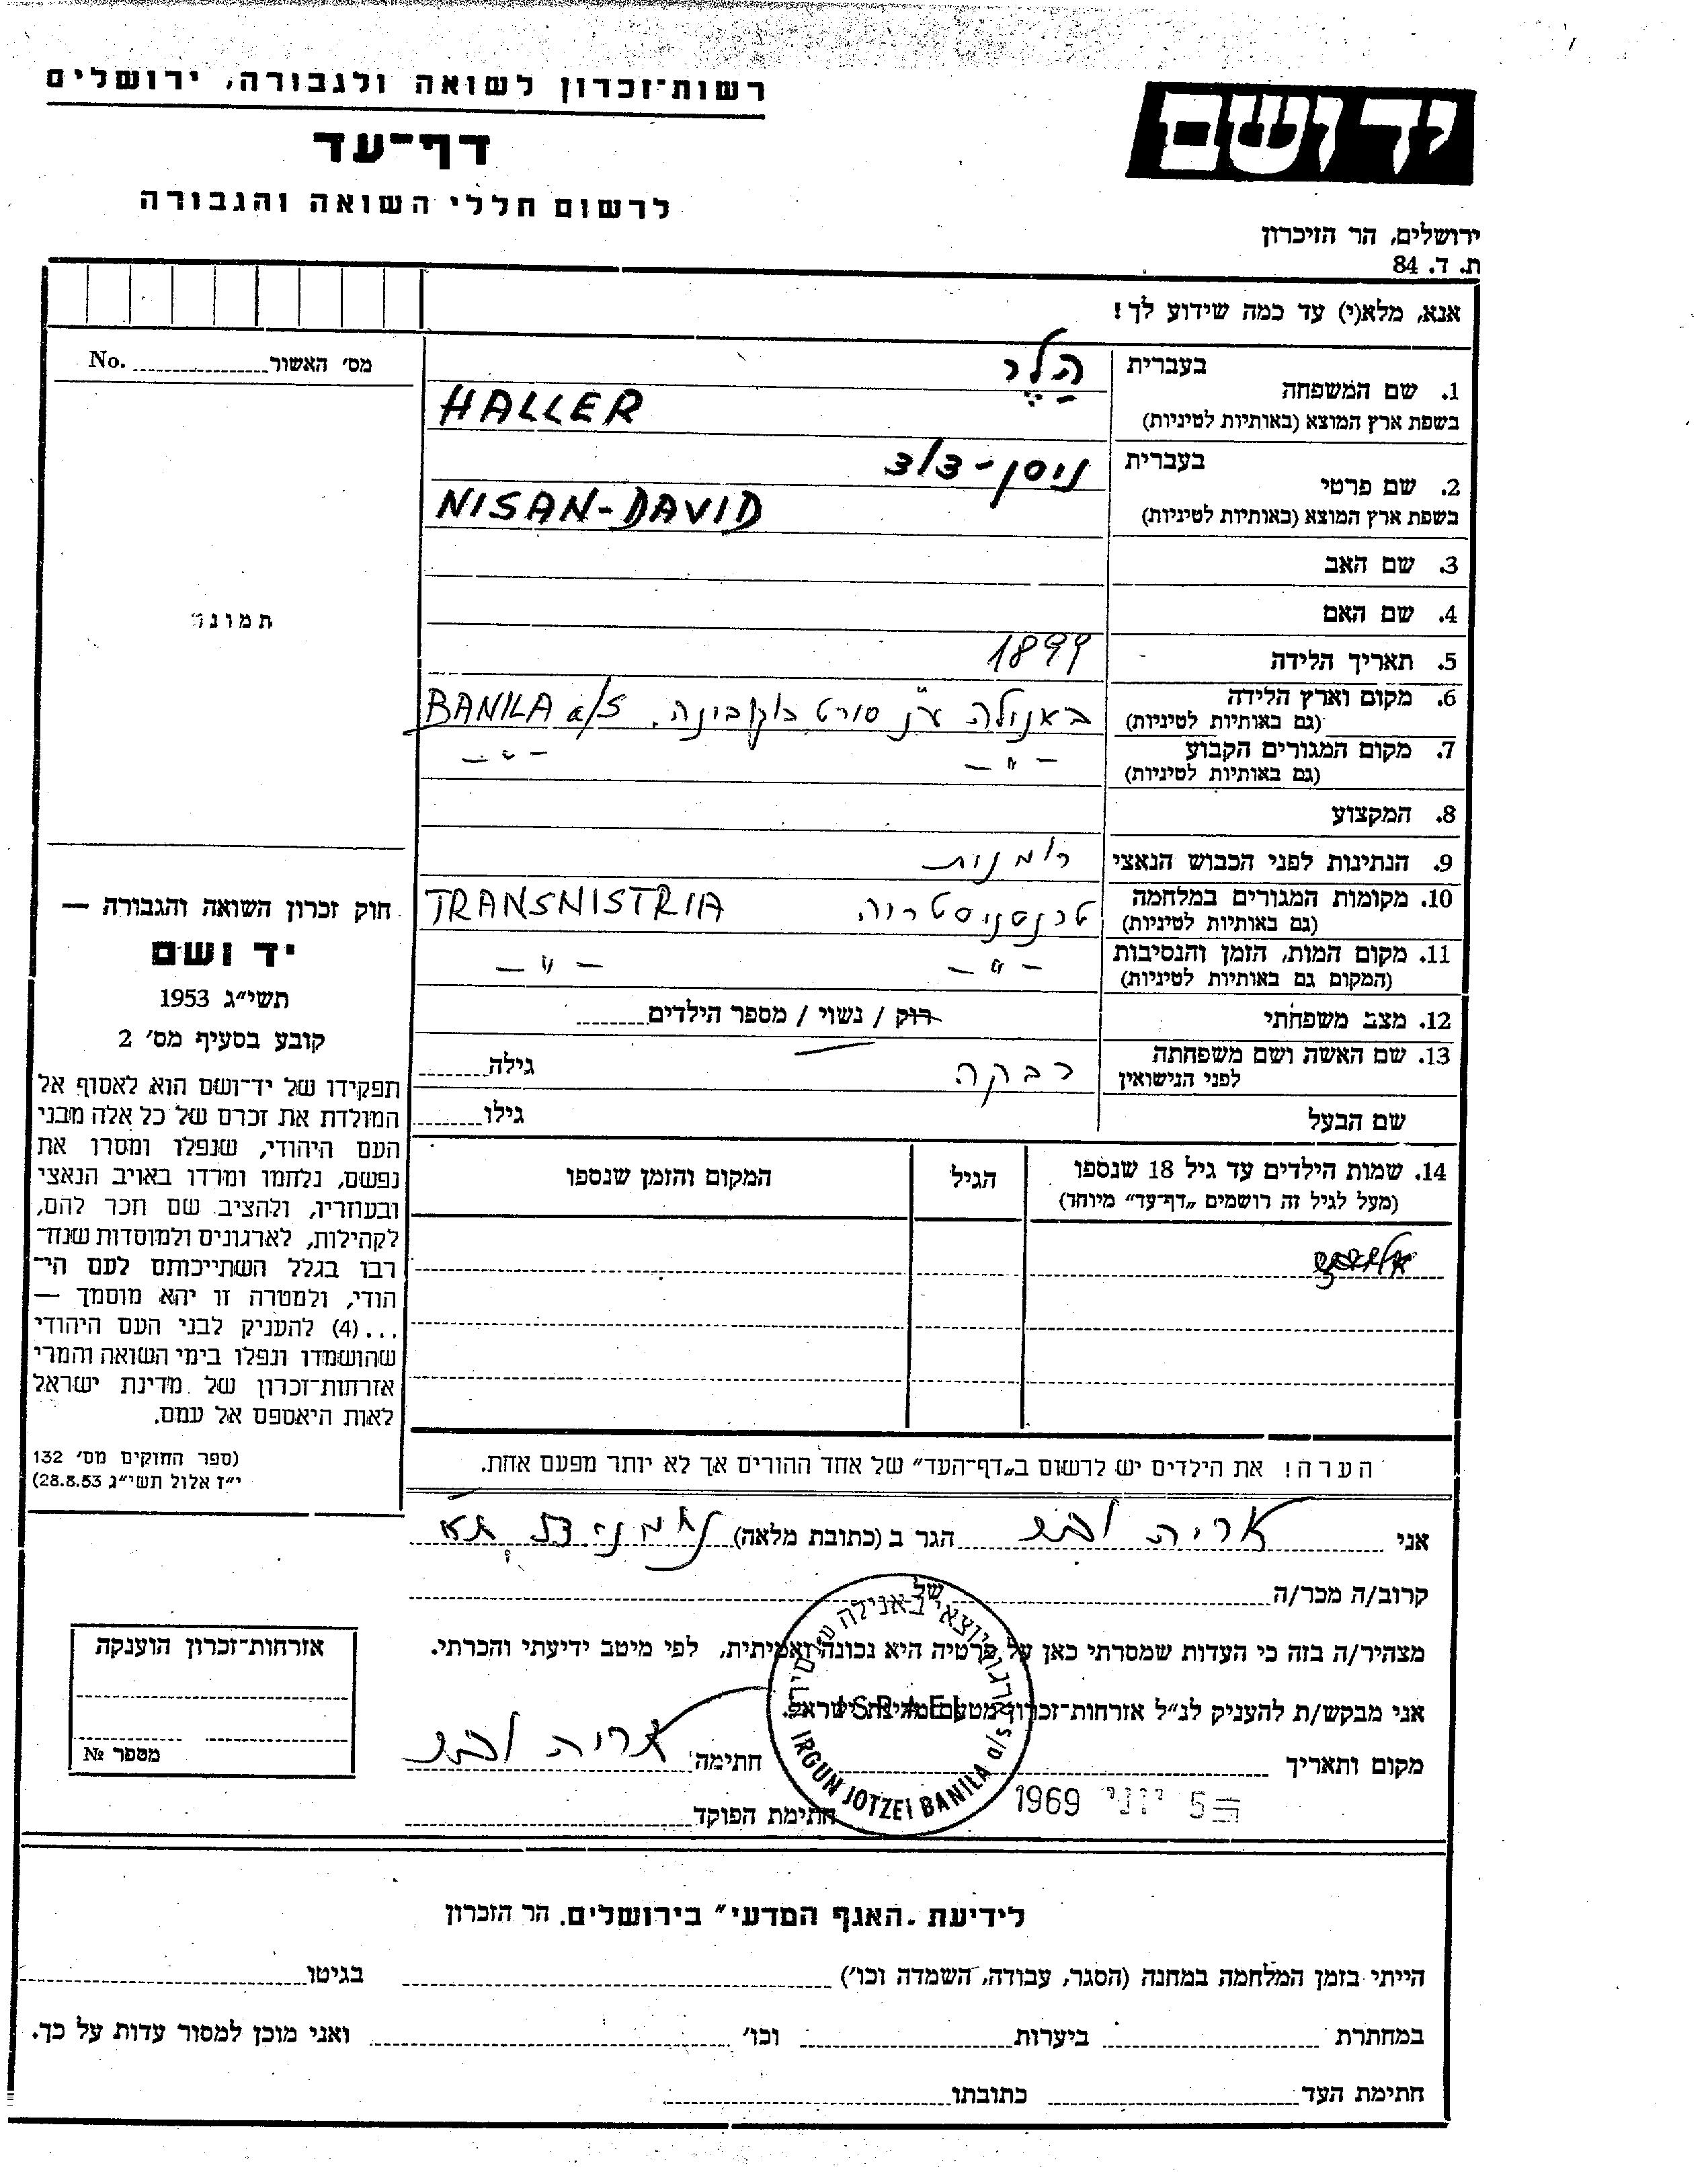 רשות־זכרון לשואה ולגבורה, ירושלים
דף־עד
לרשום חללי השואה והגבורה
יד ושם
ירושלים, הר הזיכרון
ת. ד. 84
אנא, מלא(י) עד כמה שידוע לך!
מס׳ האשור No.
1. שם המשפחה
בעברית הלר
בשפת ארץ המוצא (באותיות לטיניות) HALLER
2. שם פרטי
בעברית ניסן-דוד
בשפת ארץ המוצא (באותיות לטיניות) NISAN-DAVID
3. שם האב
4. שם האם
תמונה
5. תאריך הלידה 1899
6. מקום וארץ הלידה באנילה ע"נ סירט בוקובינה. BANILA a/S
(גם באותיות לטיניות)
7. מקום המגורים הקבוע — " — — " —
(גם באותיות לטיניות)
8. המקצוע
9. הנתינות לפני הכבוש הנאצי רומנית
10. מקומות המגורים במלחמה טרנסניסטריה TRANSNISTRIA
(גם באותיות לטיניות)
11. מקום המות, הזמן והנסיבות — " — — " —
(המקום גם באותיות לטיניות)
12. מצב משפחתי רוק / נשוי / מספר הילדים
13. שם האשה ושם משפחתה רבקה גילה
לפני הנישואין
שם הבעל גילו
14. שמות הילדים עד גיל 18 שנספו הגיל המקום והזמן שנספו
(מעל לגיל זה רושמים „דף־עד״ מיוחד)
חוק זכרון השואה והגבורה —
יד ושם
תשי״ג 1953
קובע בסעיף מס׳ 2
תפקידו של יד־ושם הוא לאסוף אל
המולדת את זכרם של כל אלה מבני
העם היהודי, שנפלו ומסרו את
נפשם, נלחמו ומרדו באויב הנאצי
ובעוזריו, ולהציב שם וזכר להם,
לקהילות, לארגונים ולמוסדות שנח־
רבו בגלל השתייכותם לעם הי־
הודי, ולמטרה זו יהא מוסמך —
...(4) להעניק לבני העם היהודי
שהושמדו ונפלו בימי השואה והמרי
אזרחות־זכרון של מדינת ישראל
לאות היאספם אל עמם.
(ספר החוקים מס׳ 132
י״ז אלול תשי״ג 28.8.53)
הערה! את הילדים יש לרשום ב„דף־העד״ של אחד ההורים אך לא יותר מפעם אחת.
אני אריה הגר ב (כתובת מלאה)
קרוב/ה מכר/ה
מצהיר/ה בזה כי העדות שמסרתי כאן על פרטיה היא נכונה ואמיתית, לפי מיטב ידיעתי והכרתי.
אני מבקש/ת להעניק לנ״ל אזרחות־זכרון מטעם מדינת ישראל.
מקום ותאריך חתימה אריה
5 יוני 1969
חתימת הפוקד
ארגון יוצאי באנילה
ISRAEL
IRGUN JOTZEI BANILA a/s
אזרחות־זכרון הוענקה
מספר №
לידיעת „האגף המדעי״ בירושלים, הר הזכרון
הייתי בזמן המלחמה במחנה (הסגר, עבודה, השמדה וכו׳) בגיטו
במחתרת ביערות וכו׳ ואני מוכן למסור עדות על כך.
חתימת העד כתובתו